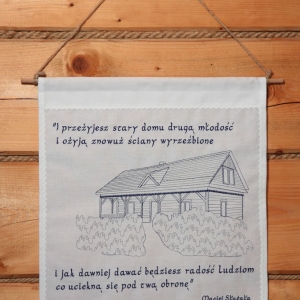 "I przeżyjesz stary domu drugą młodość
I ożyją znowuż ściany wyrzeźbione
I jak dawniej dawać będziesz radość ludziom
co uciekną się pod twą obronę"
(Maciej